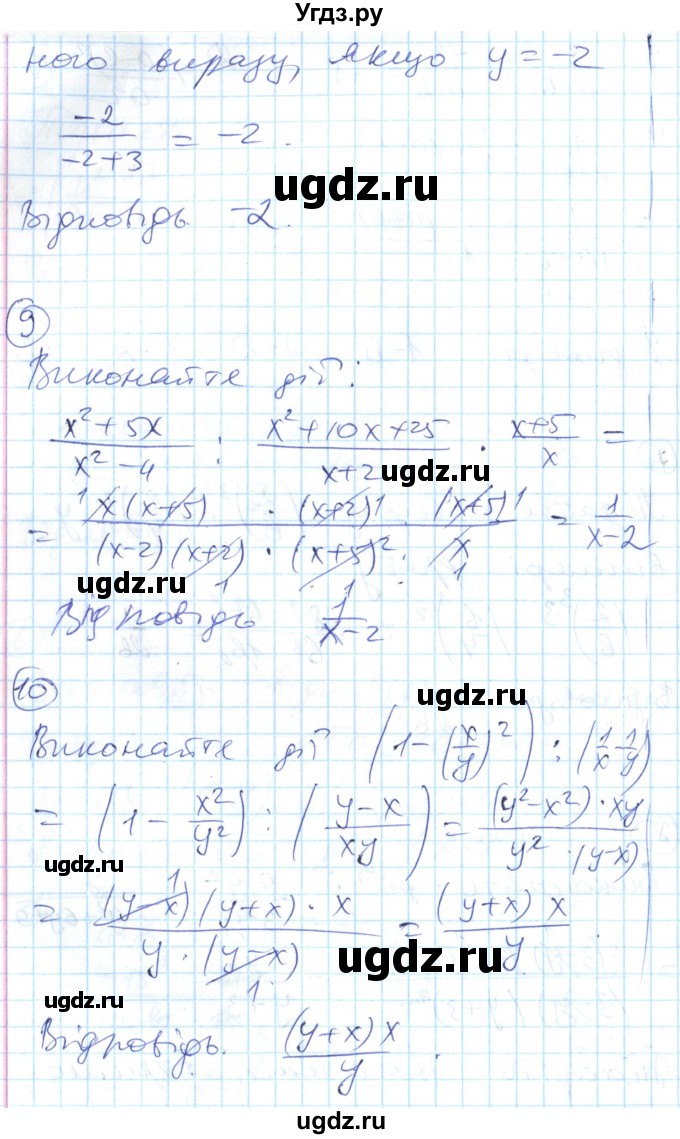 Угдз.ру
ного виразу, якщо y = -2
-2/(-2+3) = -2.
ugdz.ru
Відповідь -2.
9
Виконайте дії:
(x²+5x)/(x²-4) : (x²+10x+25)/(x+2) · (x+5)/x =
ugdz.ru
= (x(x+5) · (x+2) · (x+5))/((x-2)(x+2) · (x+5)² · x) = 1/(x-2)
ugdz.ru
Відповідь 1/(x-2)
10
ugdz.ru
Виконайте дії (1-(x/y)²) : (1/x-1/y)
= (1 - x²/y²) : ((y-x)/(xy)) = ((y²-x²)·xy)/(y²·(y-x))
ugdz.ru
= ((y-x)(y+x)·x)/(y·(y-x)) = ((y+x)x)/y.
ugdz.ru
ugdz.ru
Відповідь. ((y+x)x)/y.
ugdz.ru